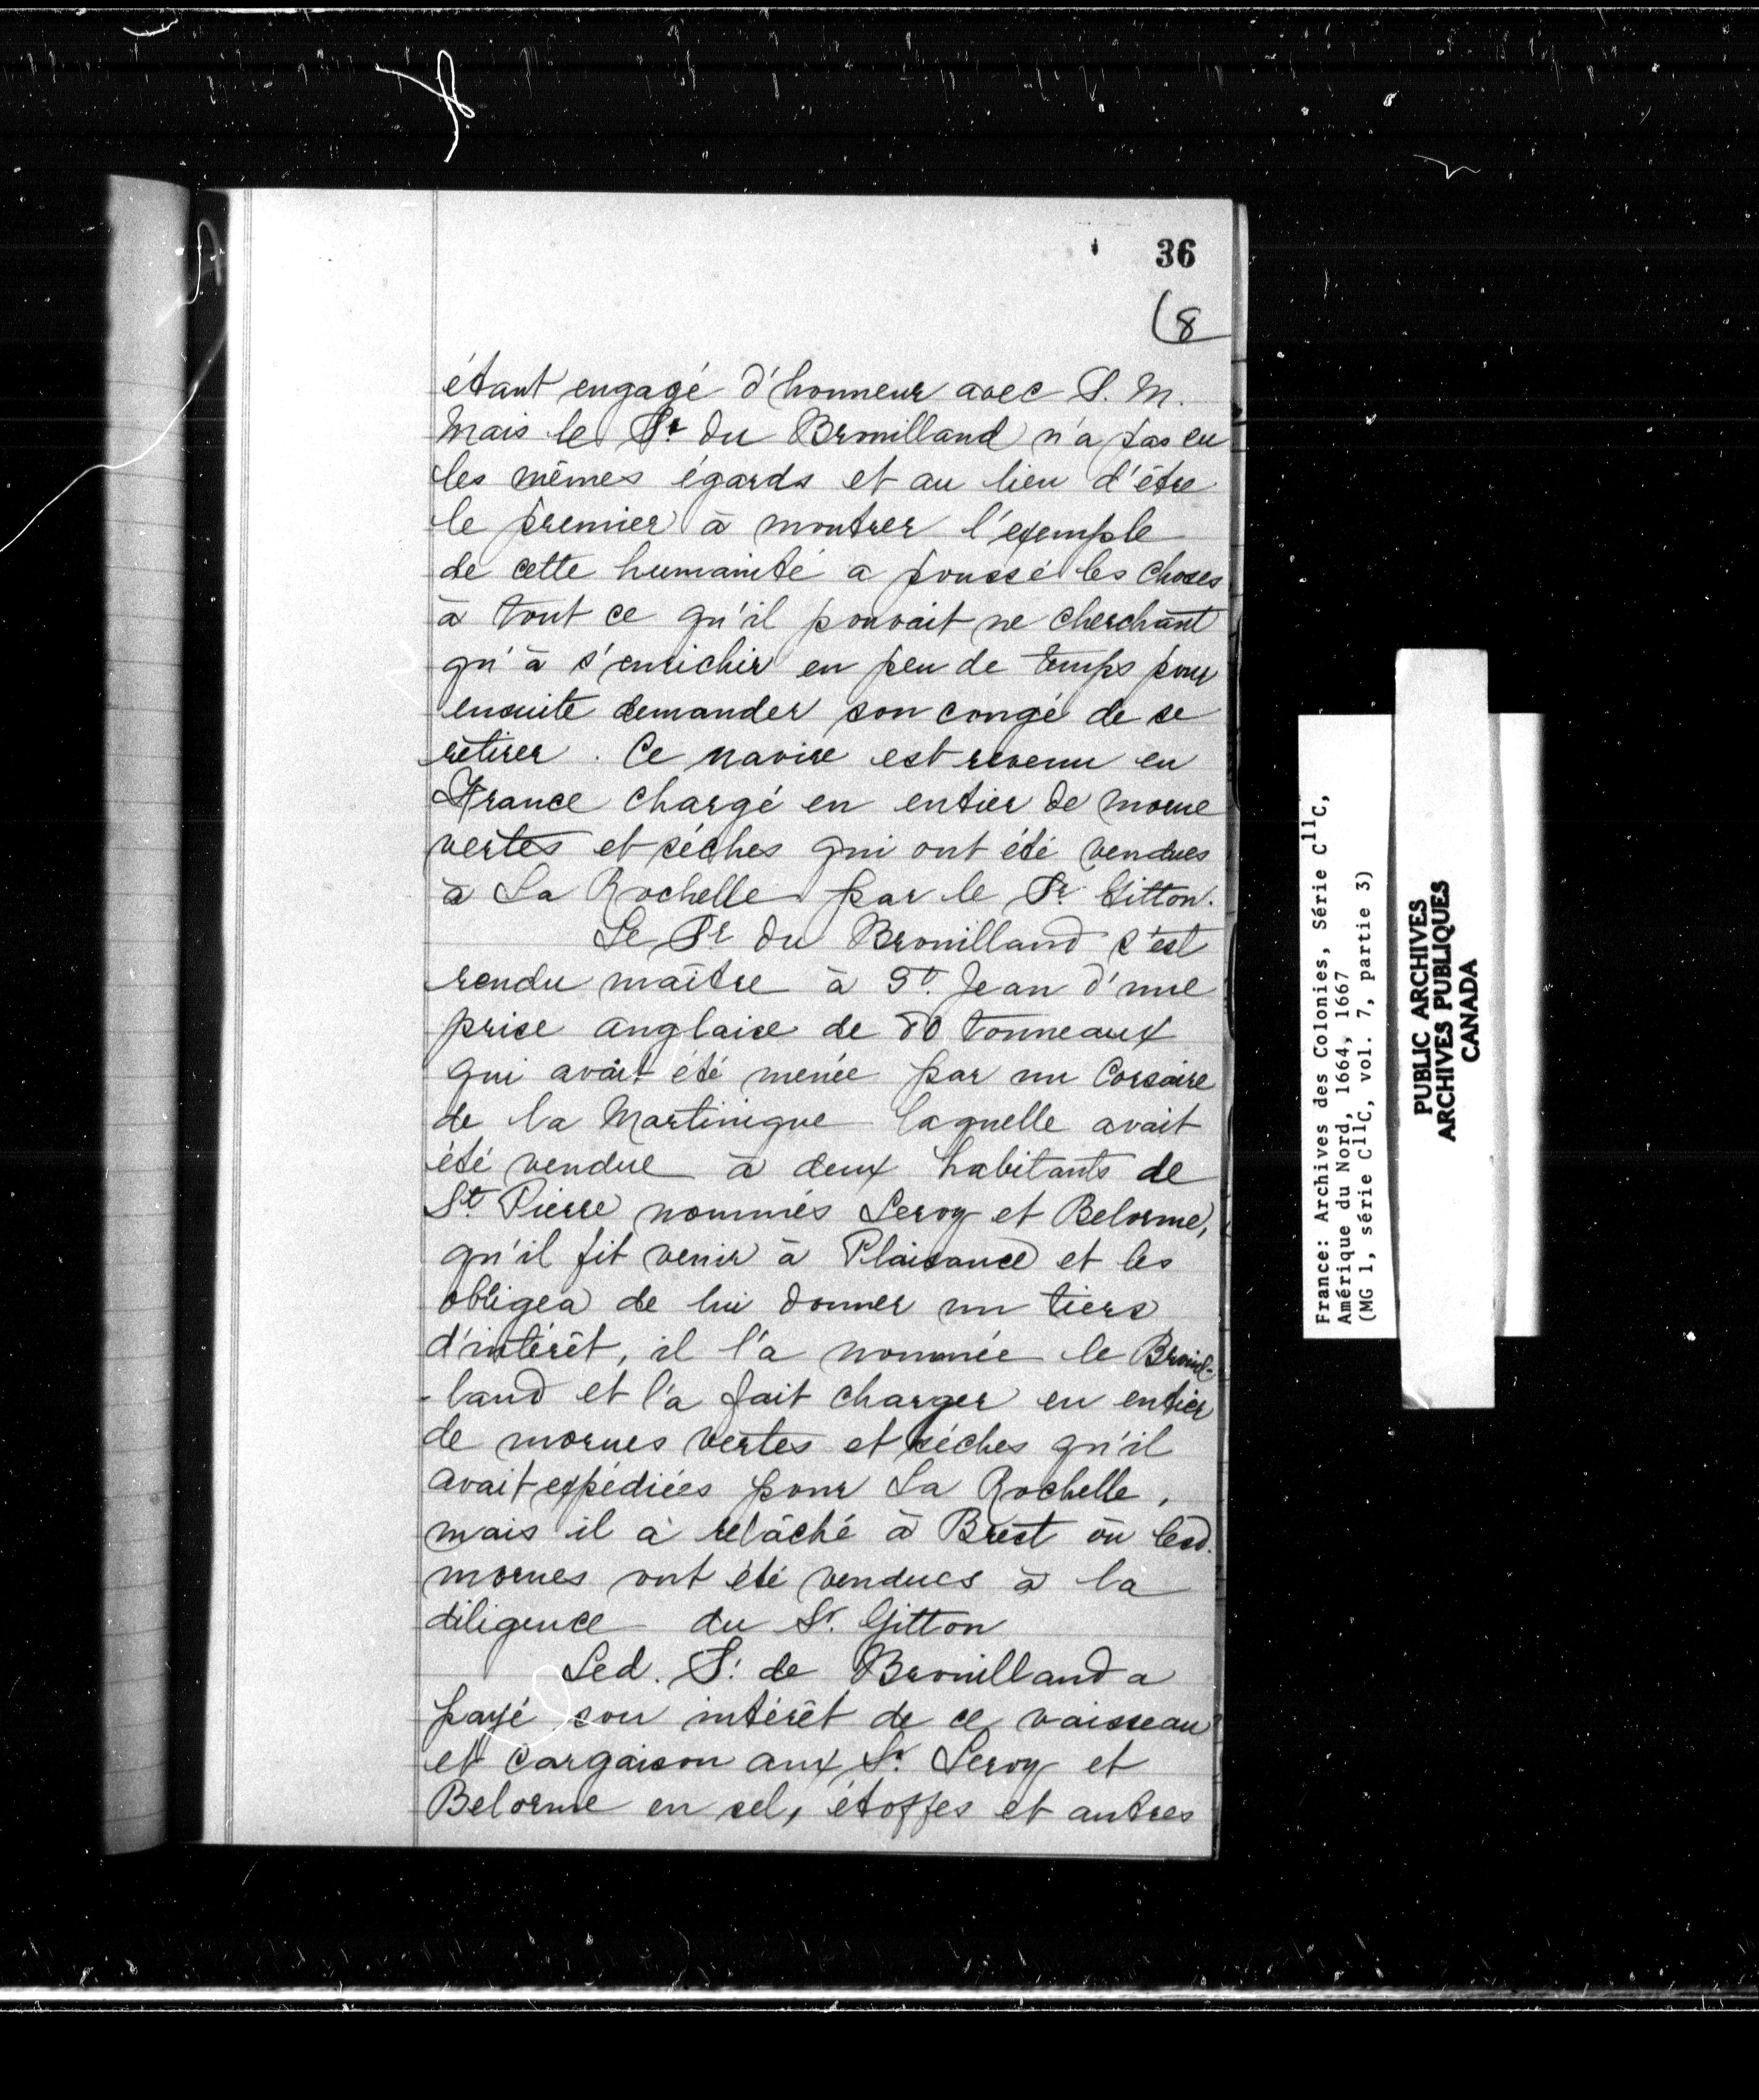 36
(8
étant engagé d'honneur avec S. M.
Mais le Sr du Brouilland n'a pas eu
les mêmes égards et au lieu d'être
le premier à montrer l'exemple
de cette humanité a poussé les choses
à tout ce qu'il pouvait ne cherchant
qu'à s'enrichir en peu de temps pour
ensuite demander son congé de se
retirer. Ce navire est revenu en
France chargé en entier de morue
vertes et sèches qui ont été vendues
à La Rochelle par le Sr Gitton.
Le Sr du Brouilland s'est
rendu maître à St. Jean d'une
prise anglaise de 80 tonneaux
qui avait été menée par un Corsaire
de la Martinique laquelle avait
été vendue à deux habitants de
St. Pierre nommés Leroy et Belorme,
qu'il fit venir à Plaisance et les
obligea de lui donner un tiers
d'intérêt, il l'a nommée le Brouil-
-land et l'a fait charger en entier
de morues vertes et sèches qu'il
avait expédiées pour La Rochelle,
mais il a relâché à Brest où lesd.
morues ont été vendues à la
diligence du Sr. Gitton
Led. Sr. de Brouilland a
payé son intérêt de ce vaisseau
et cargaison aux Sr. Leroy et
Belorme en sel, étoffes et autres
France: Archives des Colonies, Série C11C,
Amérique du Nord, 1664, 1667
(MG 1, série C11C, vol. 7, partie 3)
PUBLIC ARCHIVES
ARCHIVES PUBLIQUES
CANADA